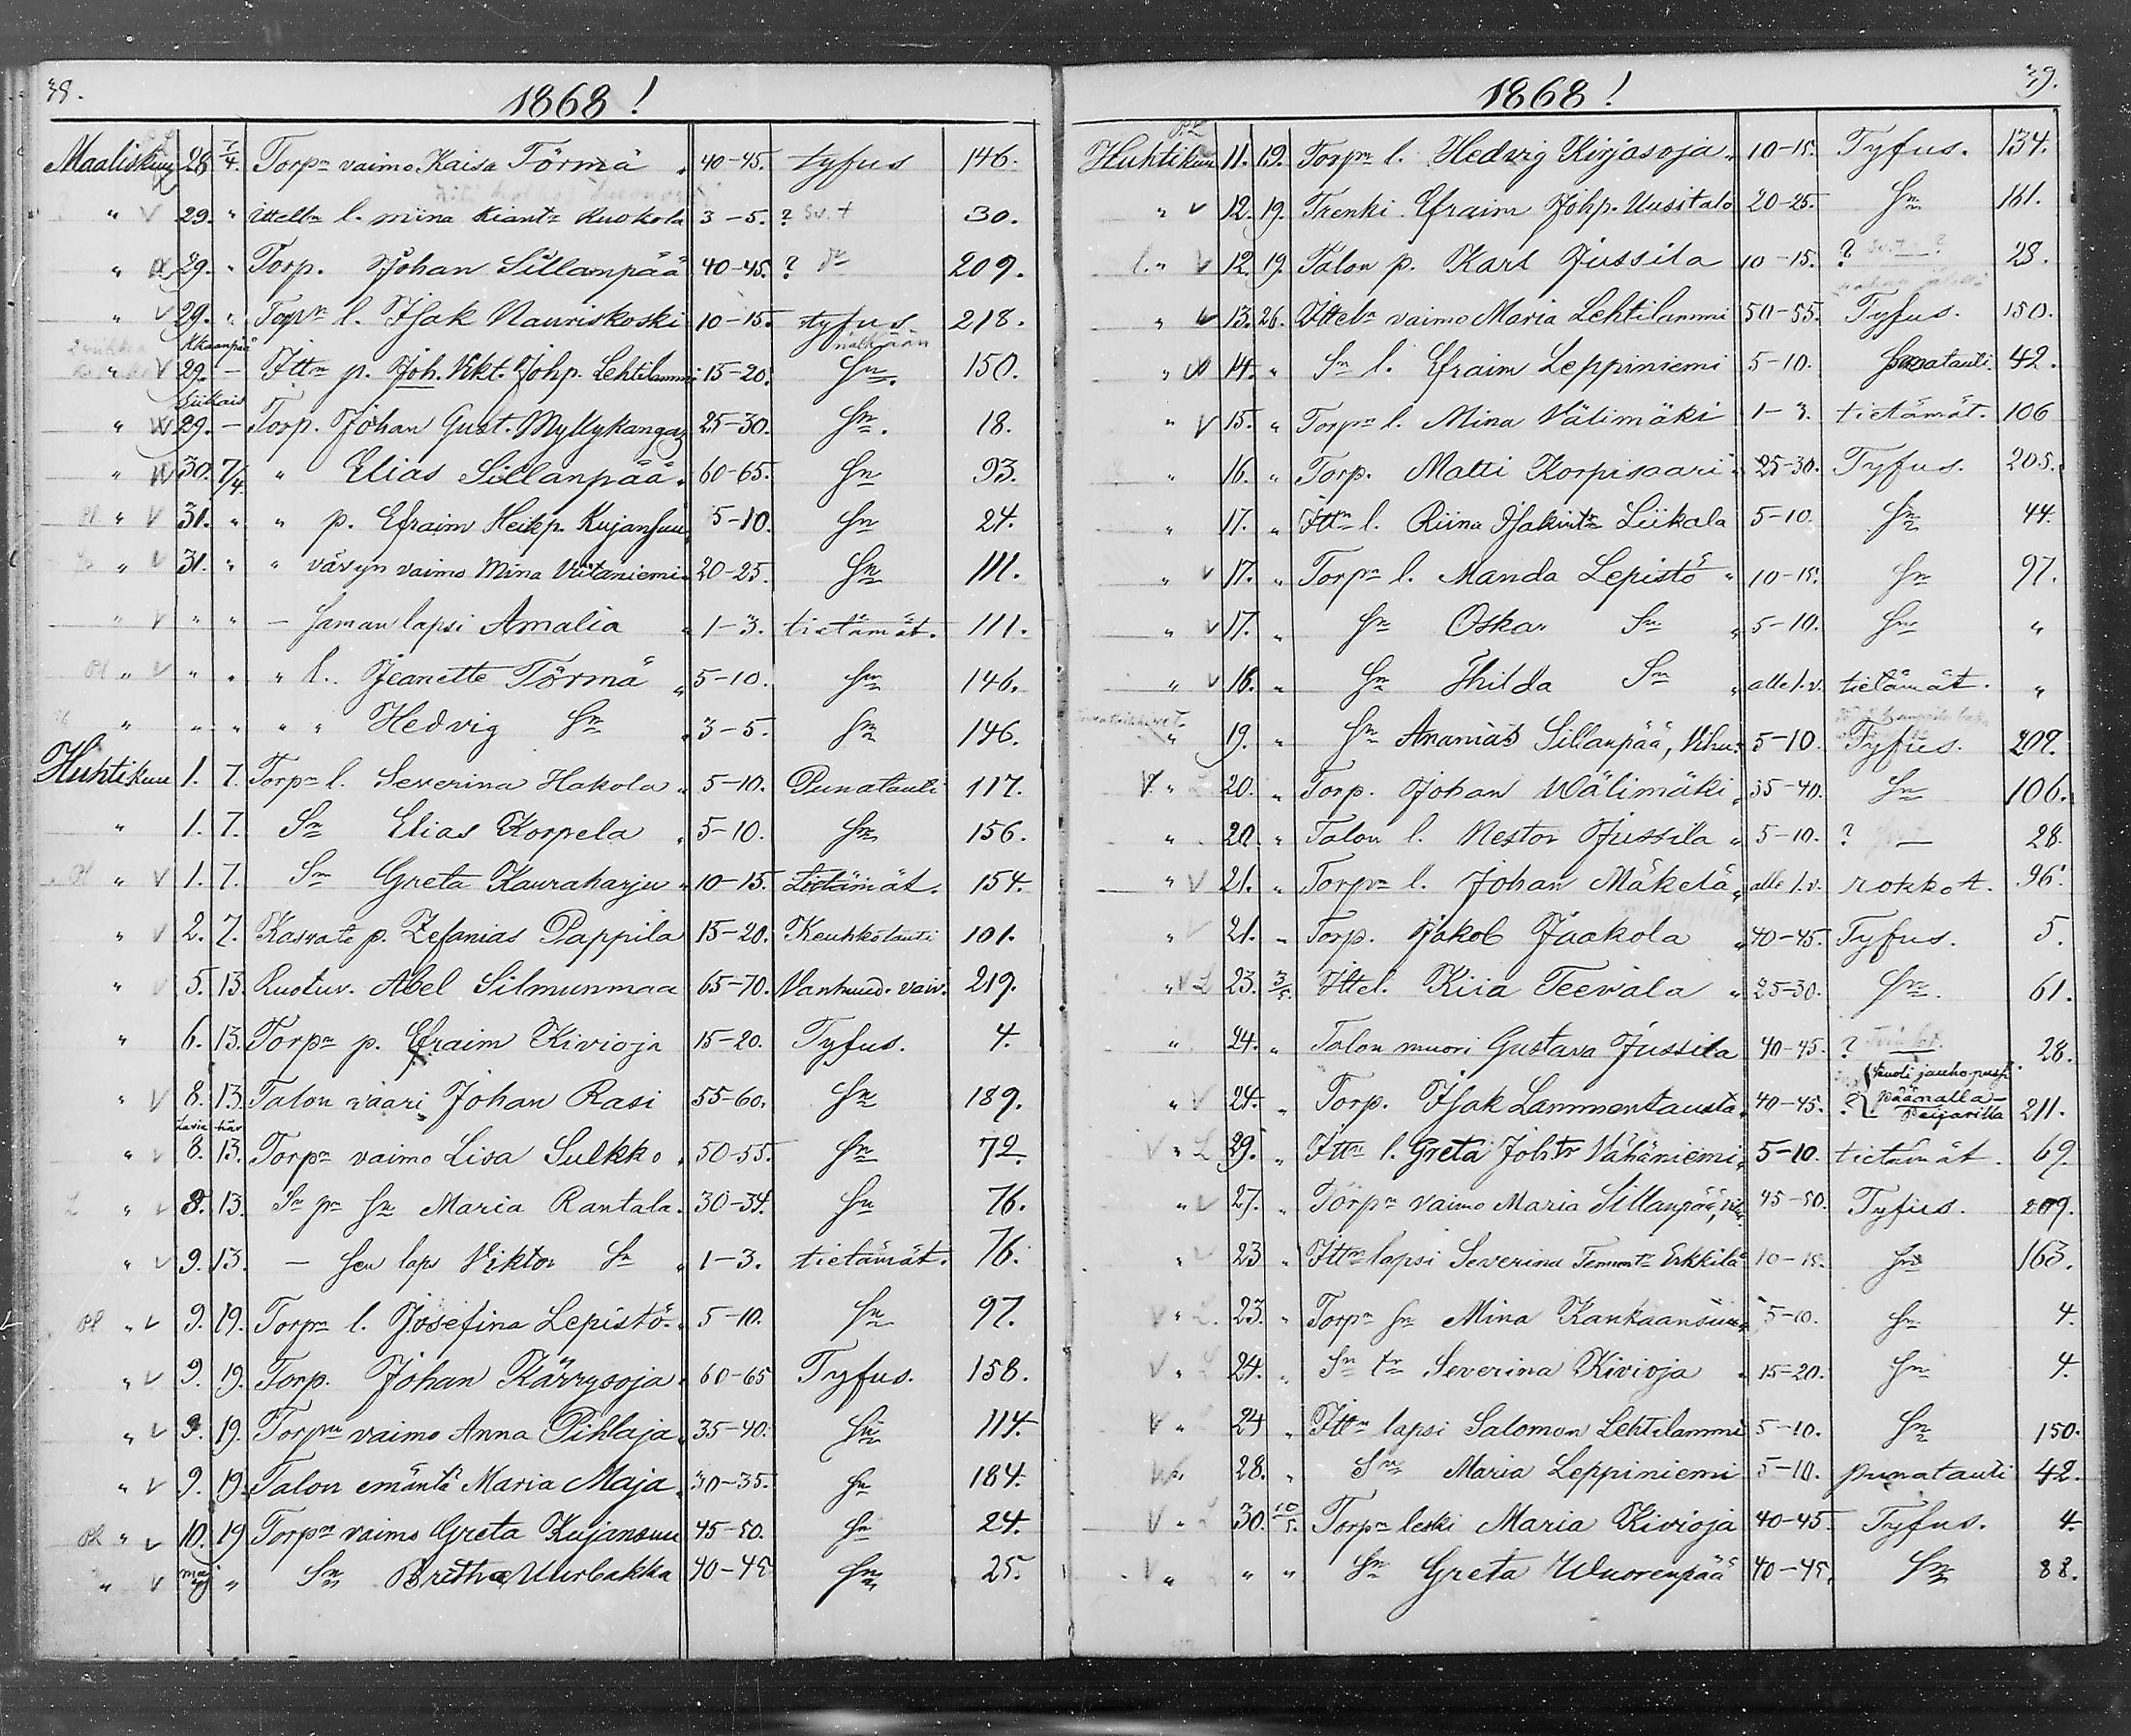 38.
1868!
Maaliskuu 28 7/4. Torpn vaimo Kaisa Törmä 40-45. tyfus 146.
" V 29. " ittelln l. miina Kiantr Ruokola 3-5. ? 30.
" 29. " Torp. Johan Sillanpää 40-45. ? 209.
" V 29. " Torpn l. Isak Nauriskoski 10-15. tyfus. 218.
" V 29. - Ittn p. Joh. Vikt. Johp. Lehtilammi 15-20. Sn. 150.
" 29. - Torp. Johan Gust. Myllykangas 25-30. Sn. 18.
" 30. 7/4. " Elias Sillanpää 60-65. Sn 93.
" V 31. " " p. Efraim Heikp. Kujansuu 5-10. Sn 24.
" V 31. " " vävyn vaimo Mina Viitaniemi 20-25. Sn 111.
" V " " - Saman lapsi Amalia 1-3. tietämät. 111.
" V " " " l. Jeanette Törmä 5-10. Sn 146.
" " " " " Hedvig Sn 3-5. Sn 146.
Huhtikuu 1. 7. Torpn l. Severina Hakola 5-10. Punatauti 117.
" 1. 7. Sn Elias Korpela 5-10. Sn 156.
" V 1. 7. Sn Greta Kauraharju 10-15. tietämät. 154.
" V 2. 7. Kasvate p. Zefanias Pappila 15-20. Keuhkotauti 101.
" V 5. 13. Ruotuv. Abel Silmunmaa 65-70. Vanhuud. vaiv. 219.
" 6. 13. Torpn p. Efraim Kivioja 15-20. Tyfus. 4.
" V 8. 13. Talon vaari Johan Rasi 55-60. Sn 189.
" V 8. 13. Torpn vaimo Lisa Sulkko 50-55. Sn 72.
L " V 8. 13. Sn pn Sn Maria Rantala 30-34. Sn 76.
" V 9. 13. - Sen laps Viktor Sn 1-3. tietämät. 76.
" V 9. 19. Torpn l. Josefina Lepistö 5-10. Sn 97.
" V 9. 19. Torp. Johan Kärrysoja 60-65 Tyfus. 158.
" V 9. 19. Torpn vaimo Anna Pihlaja 35-40. Sn 114.
" V 9. 19. Talon emäntä Maria Maja 30-35. Sn 184.
" V 10. 19 Torpn vaimo Greta Kujansuu 45-50. Sn 24.
" V " Sn Britha 40-45 Sn 25.
39.
1868!
Huhtikuu 11. 19. Torpn l. Hedvig Kirjasoja 10-15. Tyfus. 134.
" V 12. 19. Trenki Efraim Johp. Uusitalo 20-25. Sn 161.
" V 12. 19. Talon p. Karl Jussila 10-15. ? 28.
" V 13. 26. Itteln vaimo Maria Lehtilammi 50-55. Tyfus. 150.
" 14. " Sn l. Efraim Leppiniemi 5-10. Punatauti. 42.
" V 15. " Torpn l. Mina Välimäki 1-3. tietämät. 106
" 16. " Torp. Matti Korpisaari 25-30. Tyfus. 205.
" 17. " Ittn l. Riina Isakintr Liikala 5-10. Sn 44.
" V 17. " Torpn l. Manda Lepistö 10-15. Sn 97.
" V 17. " Sn Oskar Sn 5-10. Sn "
" V 18. " Sn Thilda Sn alle 1. v. tietämät. "
" 19. " Sn Ananias Sillanpää, Vihu. 5-10 Tyfus. 209.
V " 20. " Torp. Johan Wälimäki 35-40. Sn 106.
" 20. " Talon l. Nestor Jussila 5-10. ? 28.
" V 21. " Torpn l. Johan Mäkelä alle 1. v. rokkot. 96.
" V 21. " Torp. Jakob Jaakola 40-45. Tyfus. 5.
" V L 23. 3/5. Ittel. Kiia Teevala 25-30. Sn. 61.
" 24. " Talon muori Gustava Jussila 40-45. ? 28.
" V 24. " Torp. Isak Lammentausta 40-45. ? kuoli jauho-pussi päänalla Peijarilla 211.
V " L 29. " Ittn l. Greta Johtr Vähäniemi 5-10. tietämät. 69.
" V 27. " Torpn vaimo Maria Sillanpää, 45-50. Tyfus. 209.
" V 23 " Ittn lapsi Severina Erkkilä 10-15. Sn 163.
V " L. 23. " Torpn Sn Mina Kankaansuu 5-10. Sn 4.
V " L 24. " Sn tr Severina Kivioja 15-20. Sn 4.
V " 24 " Ittn lapsi Salomon Lehtilammi 5-10. Sn 150.
28. " Sn Maria Leppiniemi 5-10. punatauti 42.
V " L 30. 10/5. Torpn leski Maria Kivioja 40-45. Tyfus. 4.
V " " " Sn Greta Wuorenpää 40-45. Sn 88.